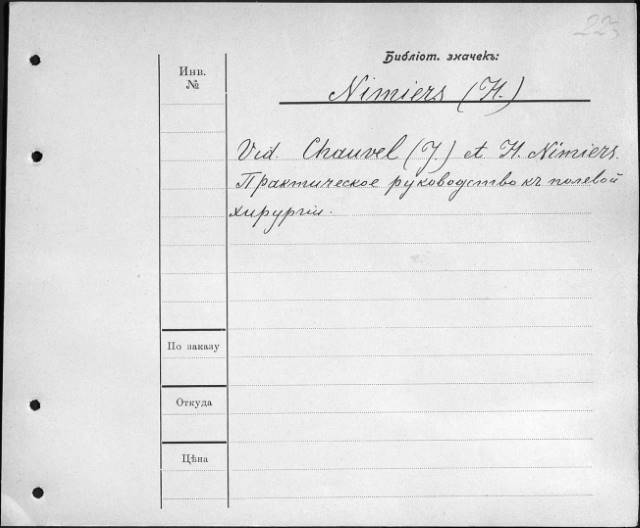 223
Библіот. значекъ:
Инв.
№
Nimiers (H.)
Vid. Chauvel (J.) et H. Nimiers.
Практическое руководство къ полевой
хирургіи.
По заказу
Откуда
Цѣна